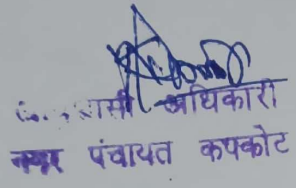 अधिकारी
नगर पंचायत कपकोट